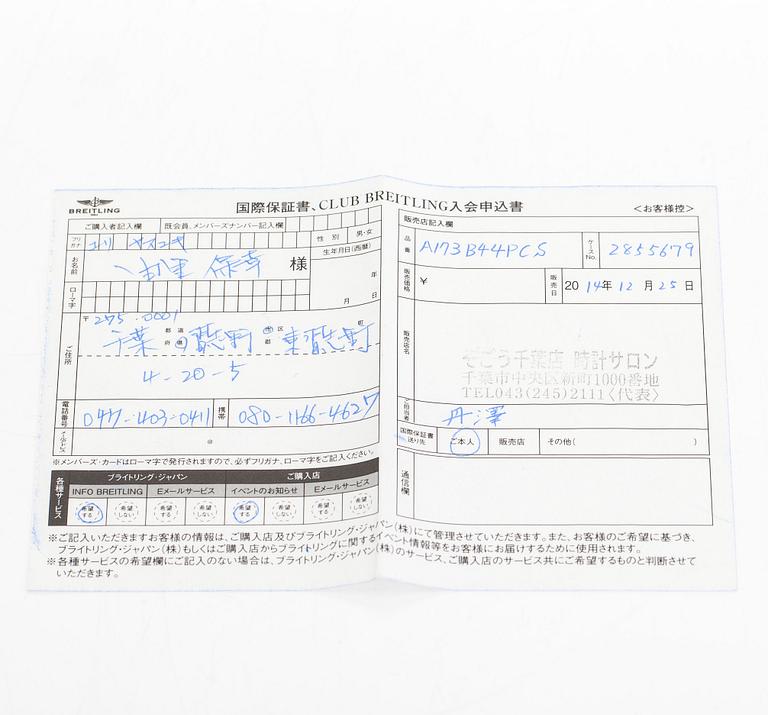 BREITLING
国際保証書、CLUB BREITLING入会申込書
<お客様控>
ご購入者記入欄
既会員、メンバーズナンバー記入欄
フリガナ
性別 男・女
お名前
保幸 様
生年月日(西暦)
年
月 日
ローマ字
〒275-0001
ご住所
千葉 都道府県 習志野 市区郡 東習志野 町
4-20-5
電話番号 047-403-0411 携帯 080-1166-4627
Eメールアドレス @
※メンバーズ・カードはローマ字で発行されますので、必ずフリガナ、ローマ字をご記入ください。
各種サービス
ブライトリング・ジャパン ご購入店
INFO BREITLING Eメールサービス イベントのお知らせ Eメールサービス
希望する 希望しない 希望する 希望しない 希望する 希望しない 希望する 希望しない
販売店記入欄
品番 A173B44PCS ケースNo. 2855679
販売価格 ¥ 販売日 2014年12月25日
販売店名
そごう千葉店 時計サロン
千葉市中央区新町1000番地
TEL043(245)2111〈代表〉
ご担当者 丹澤
国際保証書送り先 ご本人 販売店 その他( )
通信欄
※ご記入いただきますお客様の情報は、ご購入店及びブライトリング・ジャパン(株)にて管理させていただきます。また、お客様のご希望に基づき、
ブライトリング・ジャパン(株)もしくはご購入店からブライトリングに関するイベント情報等をお客様にお届けするために使用されます。
※各種サービスの希望欄にご記入のない場合は、ブライトリング・ジャパン(株)のサービス、ご購入店のサービス共にご希望するものと判断させて
いただきます。